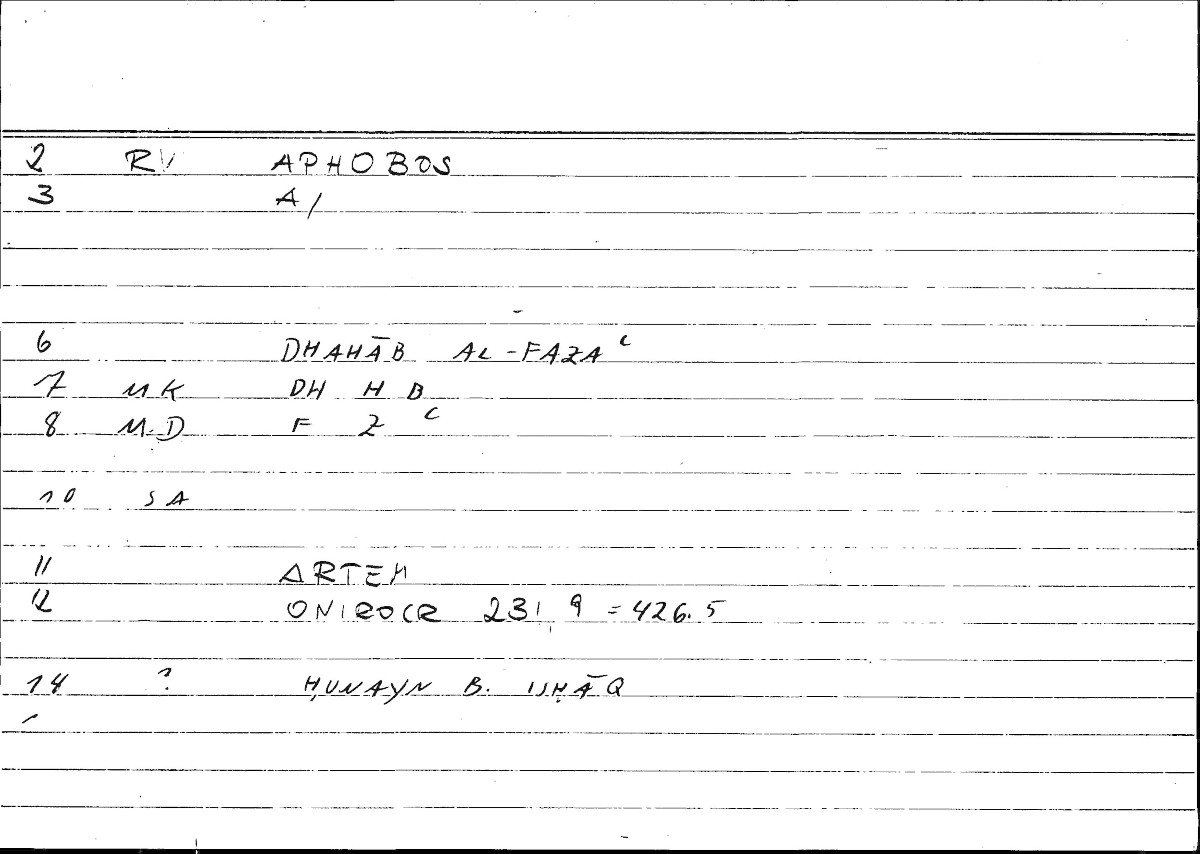 2 RV APHOBOS
3 A/
6 DHAHĀB AL-FAZAʿ
7 MK DH H B
8 MD F Z ʿ
10 SA
11 ARTEM
12 ONIROCR 231,9 = 426.5
14 ? ḤUNAYN B. ISḤĀQ